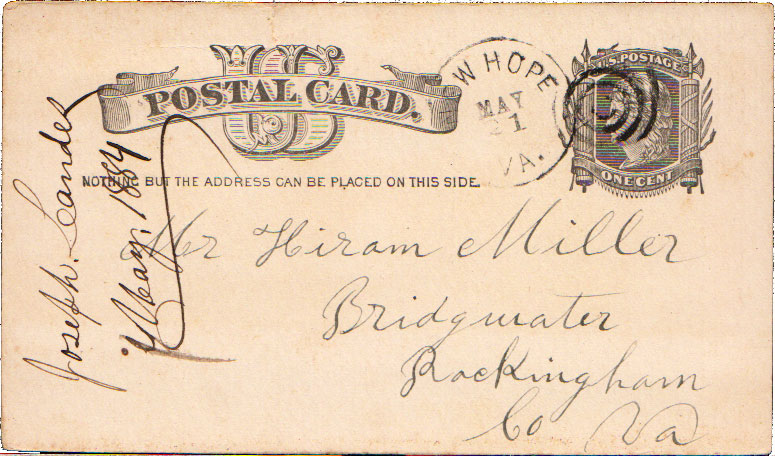 U S
POSTAL CARD.
NOTHING BUT THE ADDRESS CAN BE PLACED ON THIS SIDE.
W HOPE
MAY
21
VA.
U.S. POSTAGE
ONE CENT
Mr Hiram Miller
Bridgwater
Rockingham
Co Va
Joseph. Landes
May. 1884